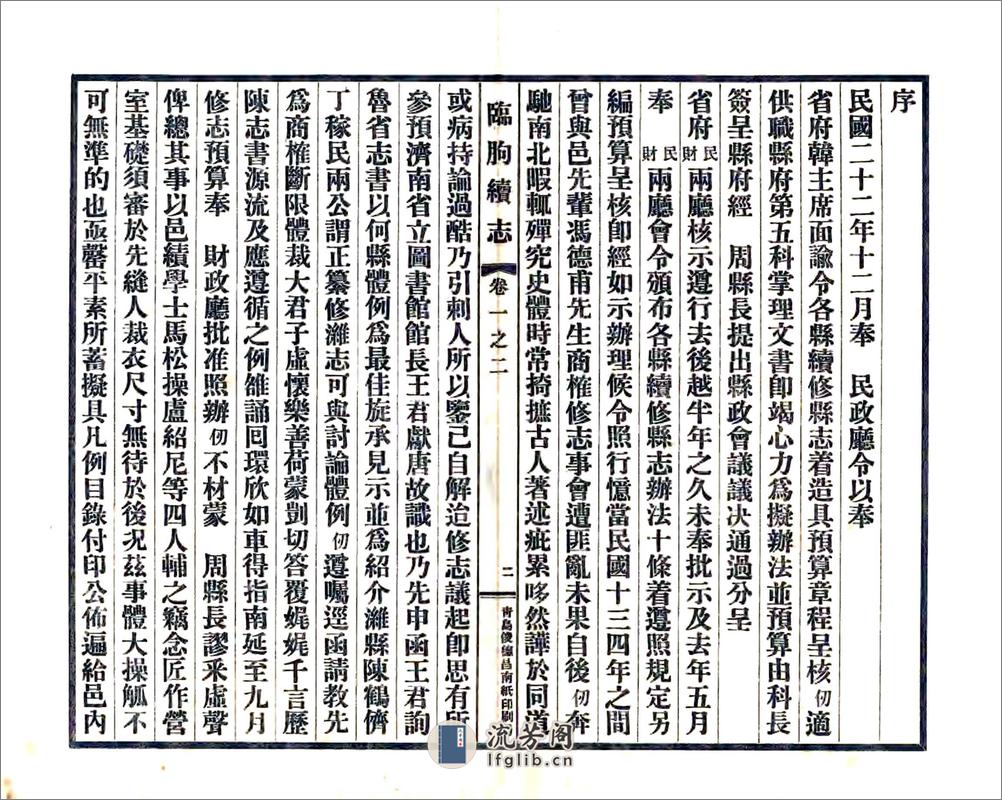 序
民國二十二年十二月奉　民政廳令以奉
省府韓主席面諭令各縣續修縣志着造具預算章程呈核仞適
供職縣府第五科掌理文書卽竭心力爲擬辦法並預算由科長
簽呈縣府經　周縣長提出縣政會議議决通過分呈
省府民財兩廳核示遵行去後越半年之久未奉批示及去年五月
奉民財兩廳會令頒布各縣續修縣志辦法十條着遵照規定另
編預算呈核卽經如示辦理候令照行憶當民國十三四年之間
曾與邑先輩馮德甫先生商榷修志事會遭匪亂未果自後仞奔
馳南北暇輒殫究史體時常掎摭古人著述疵累哆然譁於同道
臨朐續志　卷一之二　二　靑島俊德昌南紙印刷
或病持論過酷乃引刺人所以鑒己自解迨修志議起卽思有所
參預濟南省立圖書館館長王君獻唐故識也乃先申函王君詢
魯省志書以何縣體例爲最佳旋承見示並爲紹介濰縣陳鶴儕
丁稼民兩公謂正纂修濰志可與討論體例仞遵囑逕函請敎先
爲商榷斷限體裁大君子虛懷樂善荷蒙剴切答覆娓娓千言歷
陳志書源流及應遵循之例雒誦回環欣如車得指南延至九月
修志預算奉　財政廳批准照辦仞不材蒙　周縣長謬采虛聲
俾總其事以邑績學士馬松操盧紹尼等四人輔之竊念匠作營
室基礎須審於先縫人裁衣尺寸無待於後况茲事體大操觚不
可無準的也亟罄平素所蓄擬具凡例目錄付印公佈遍給邑內
流芳阁
lfglib.cn